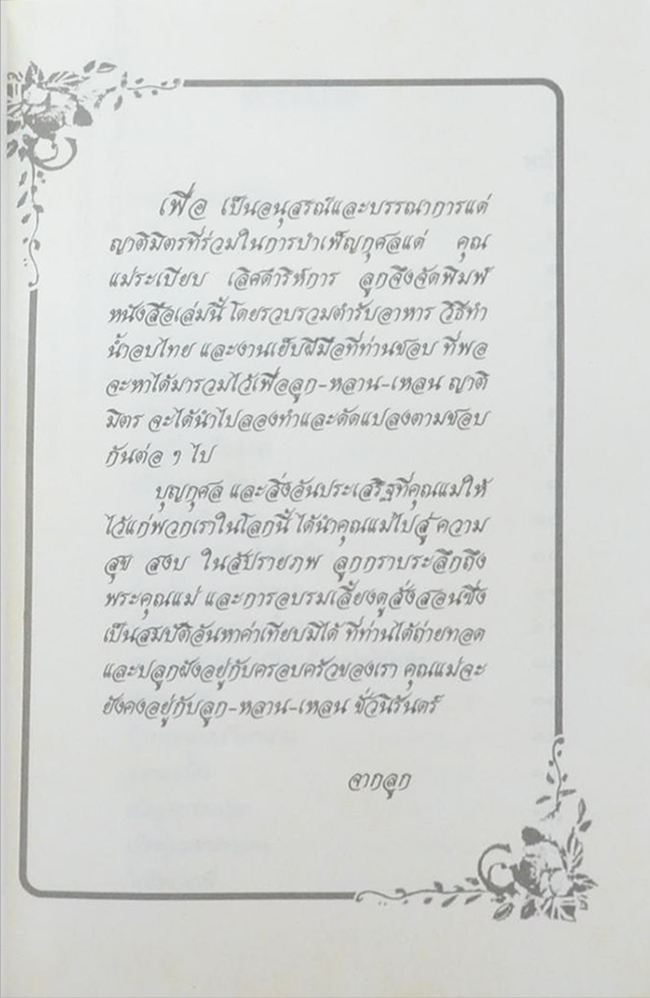 เพื่อ เป็นอนุสรณ์และบรรณาการแด่
ญาติมิตรที่ร่วมในการบำเพ็ญกุศลแด่ คุณ
แม่ระเบียบ เลิศดำริห์การ ลูกจึงจัดพิมพ์
หนังสือเล่มนี้ โดยรวบรวมตำรับอาหาร วิธีทำ
น้ำอบไทย และงานเย็บฝีมือที่ท่านชอบ ที่พอ
จะหาได้มารวมไว้เพื่อลูก-หลาน-เหลน ญาติ
มิตร จะได้นำไปลองทำและดัดแปลงตามชอบ
กันต่อ ๆ ไป
บุญกุศล และสิ่งอันประเสริฐที่คุณแม่ให้
ไว้แก่พวกเราในโลกนี้ ได้นำคุณแม่ไปสู่ ความ
สุข สงบ ในสัปรายภพ ลูกกราบระลึกถึง
พระคุณแม่ และการอบรมเลี้ยงดูสั่งสอนซึ่ง
เป็นสมบัติอันหาค่าเทียบมิได้ ที่ท่านได้ถ่ายทอด
และปลูกฝังอยู่กับครอบครัวของเรา คุณแม่จะ
ยังคงอยู่กับลูก-หลาน-เหลน ชั่วนิรันดร์
จากลูก